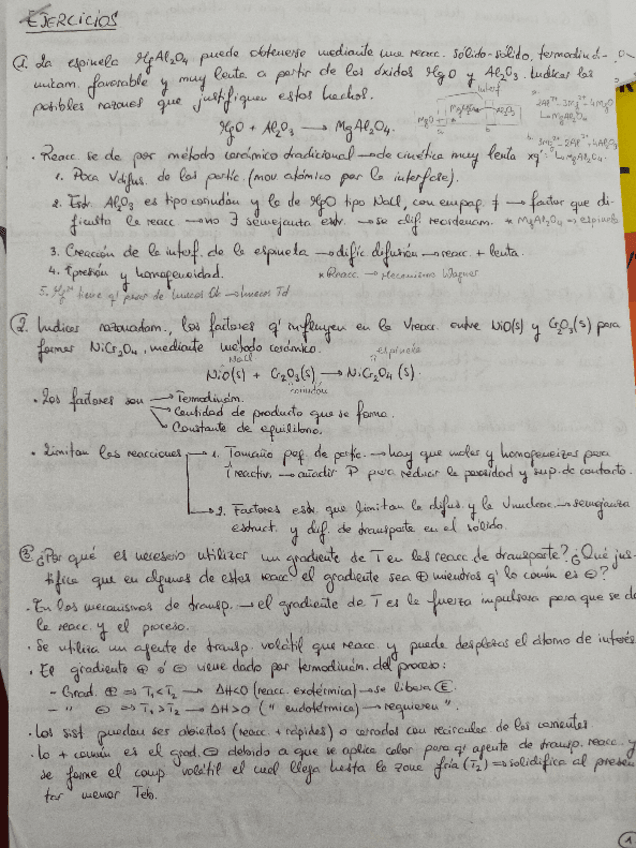 EJERCICIOS
1. La espinela MgAl2O4 puede obtenerse mediante una reacc. sólido-sólido, termodiná-
micam. favorable y muy lenta a partir de los óxidos MgO y Al2O3. Indicar las
posibles razones que justifiquen estos hechos.
MgO + Al2O3 → MgAl2O4.
· Reacc se da por método cerámico tradicional → de cinética muy lenta xq'
1. Poca Vdifus. de las partíc. (mov atómico por la interfase).
2. Estr. Al2O3 es tipo corindón y la de MgO tipo NaCl, con empaq. ≠ → factor que di-
ficulta la reacc → no ∃ semejanza estr. → se dif. reordenam. * MgAl2O4 → espinela
3. Creación de la interf. de la espinela → dific difusión → reacc. + lenta.
4. ↑presión y homogeneidad. * Reacc. → Mecanismo Wagner
5. Mg2+ tiene q' pasar de huecos Oh → huecos Td
2. Indicar razonadam., los factores q' influyen en la Vreacc. entre NiO(s) y Cr2O3(s) para
formar NiCr2O4, mediante método cerámico.
NaCl espinela
NiO(s) + Cr2O3(s) → NiCr2O4(s).
corindón
· Los factores son → Termodinám.
→ Cantidad de producto que se forma.
→ Constante de equilibrio.
· Limitan las reacciones → 1. Tamaño peq. de partíc. → hay que moler y homogeneizar para
↑ reactiv. → añadir P para reducir la porosidad y sup. de contacto.
→ 2. Factores estr. que limitan la difus. y la Vnucleac. → semejanza
estruct. y dif. de transporte en el sólido.
3. ¿Por qué es necesario utilizar un gradiente de T en las reacc de transporte? ¿Qué jus-
tifica que en algunas de estas reacc el gradiente sea ⊕ mientras q' lo común es ⊖?
· En los mecanismos de transp. → el gradiente de T es la fuerza impulsora para que se dé
la reacc. y el proceso.
· Se utiliza un agente de transp. volátil que reacc. y puede desplazar el átomo de interés.
· El gradiente ⊕ ó ⊖ viene dado por termodinám. del proceso:
- Grad. ⊕ ⇒ T1 < T2 → ΔH<0 (reacc. exotérmica) → se libera E.
- " ⊖ ⇒ T1 > T2 → ΔH>0 (" endotérmica) → requieren ".
· Los sist pueden ser abiertos (reacc. + rápidas) o cerrados con recircular de las corrientes.
· Lo + común es el grad. ⊖ debido a que se aplica calor para q' agente de transp. reacc. y
se forme el comp volátil el cual llega hasta la zona fría (T2) ⇒ solidifica al presen
tar menor Teb.
1